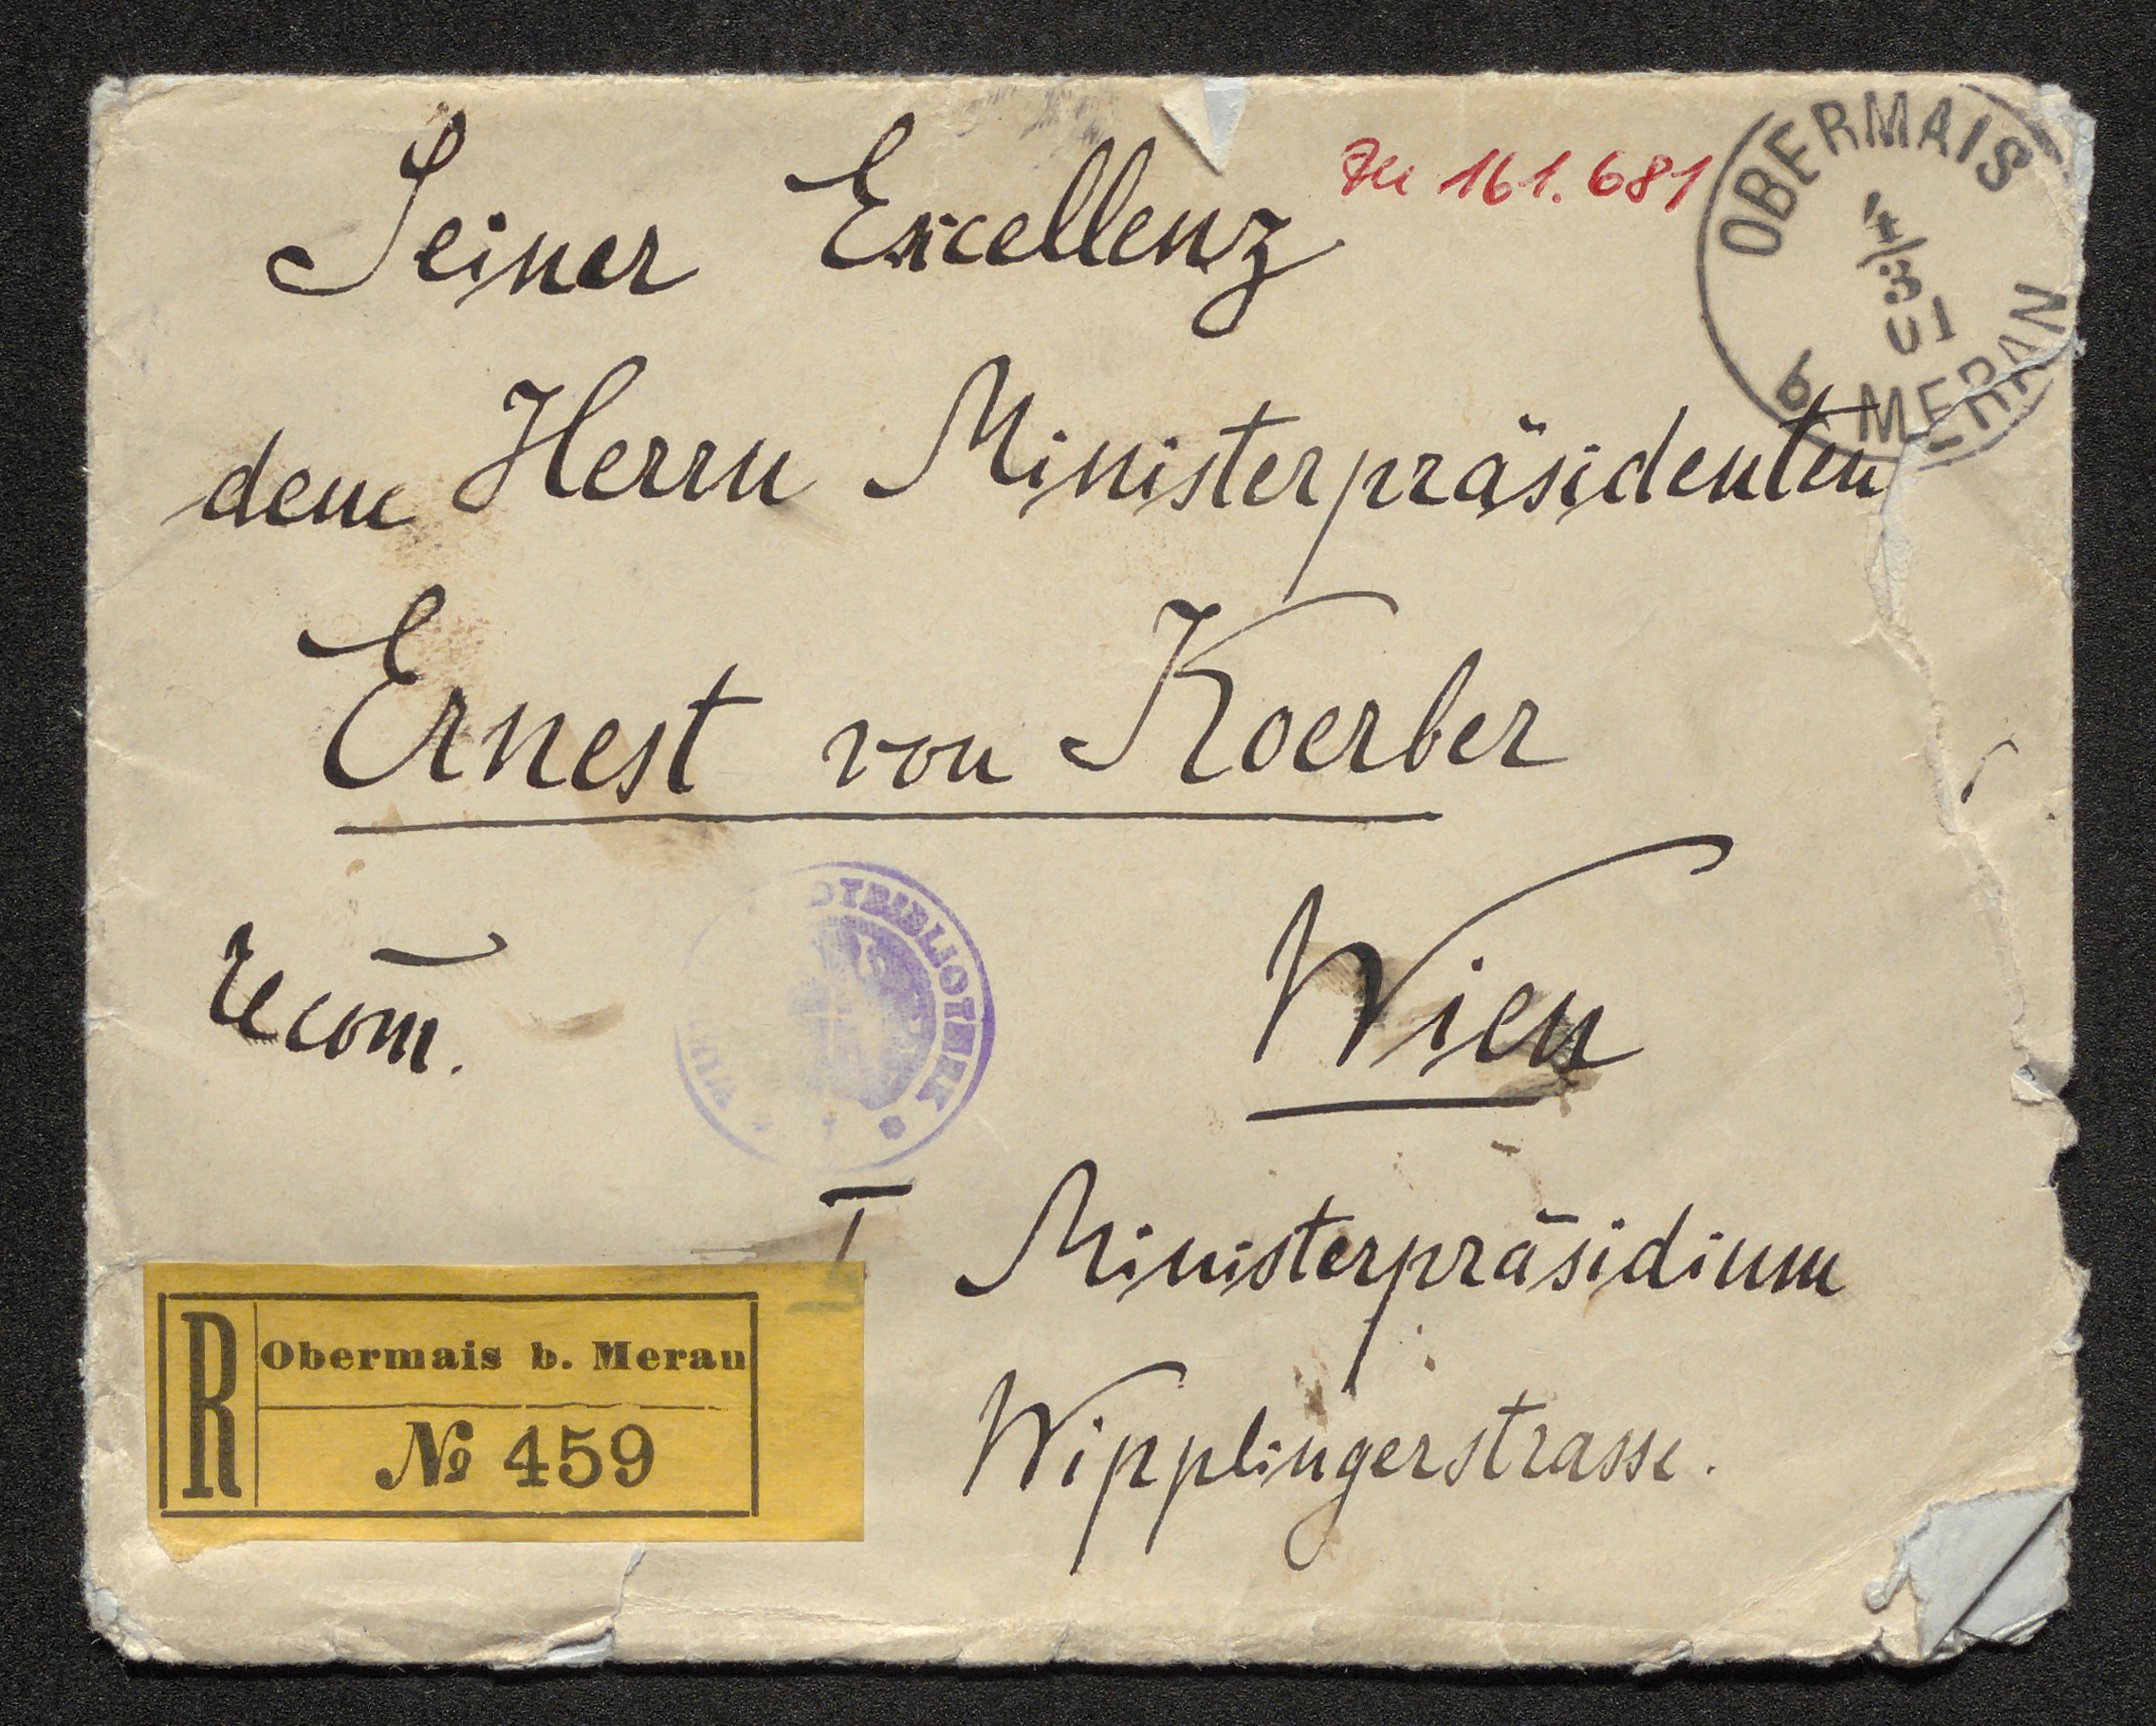 Seiner Excellenz
Zu 161.681
OBERMAIS
4/3
01
b. MERAN
dem Herrn Ministerpräsidenten
Ernest von Koerber
recom̅.
Wien
I Ministerpräsidium
Wipplingerstrasse.
R
Obermais b. Meran
№ 459